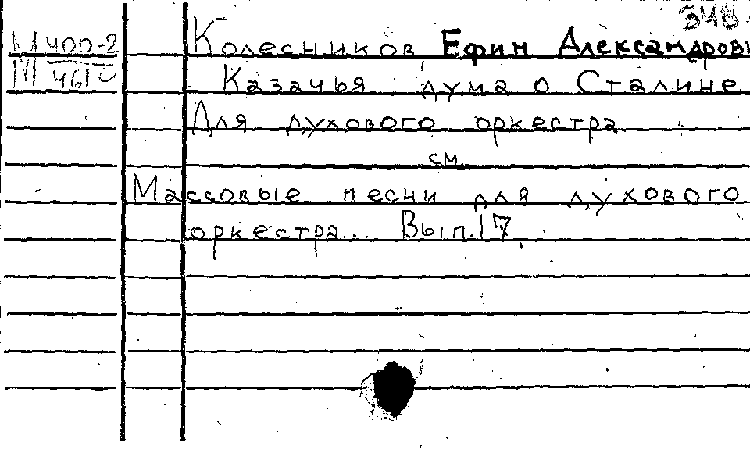 Колесников Ефим Александрови
М 400-2
Казачья дума о Сталине
Для духового оркестра
см.
Массовые песни для духового
оркестра. Вып.17.